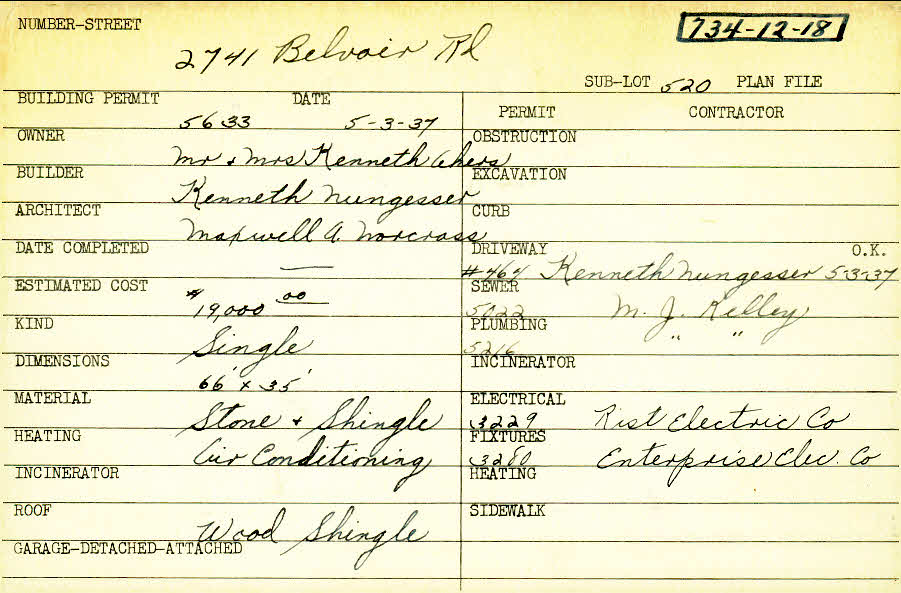 NUMBER-STREET
734-12-18
2741 Belvoir Rd
SUB-LOT 520 PLAN FILE
BUILDING PERMIT DATE
5633 5-3-37
PERMIT CONTRACTOR
OWNER
Mr & Mrs Kenneth Akers
OBSTRUCTION
BUILDER
Kenneth Nungesser
EXCAVATION
ARCHITECT
Maxwell A. Norcross
CURB
DATE COMPLETED
—
DRIVEWAY O.K.
#464 Kenneth Nungesser 5-3-37
ESTIMATED COST
$19,000 00
SEWER
5022 M. J. Kelley
KIND
Single
PLUMBING
5216 " "
DIMENSIONS
66' x 35'
INCINERATOR
MATERIAL
Stone & Shingle
ELECTRICAL
3229 Rist Electric Co
HEATING
Air Conditioning
FIXTURES
3280 Enterprise Elec. Co
INCINERATOR
HEATING
ROOF
Wood Shingle
SIDEWALK
GARAGE-DETACHED-ATTACHED